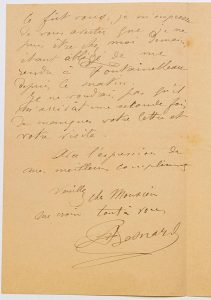 je m'empresse
de vous avertir que je ne
puis être chez moi demain
étant obligé de me
rendre à Fontainebleau
depuis le matin.
Je ne voudrais pas qu'il
une seconde fois
de manquer votre lettre et
votre visite.
l'expression de
mes meilleurs compliments
veuillez cher Monsieur
me croire tout à vous
ABesnard